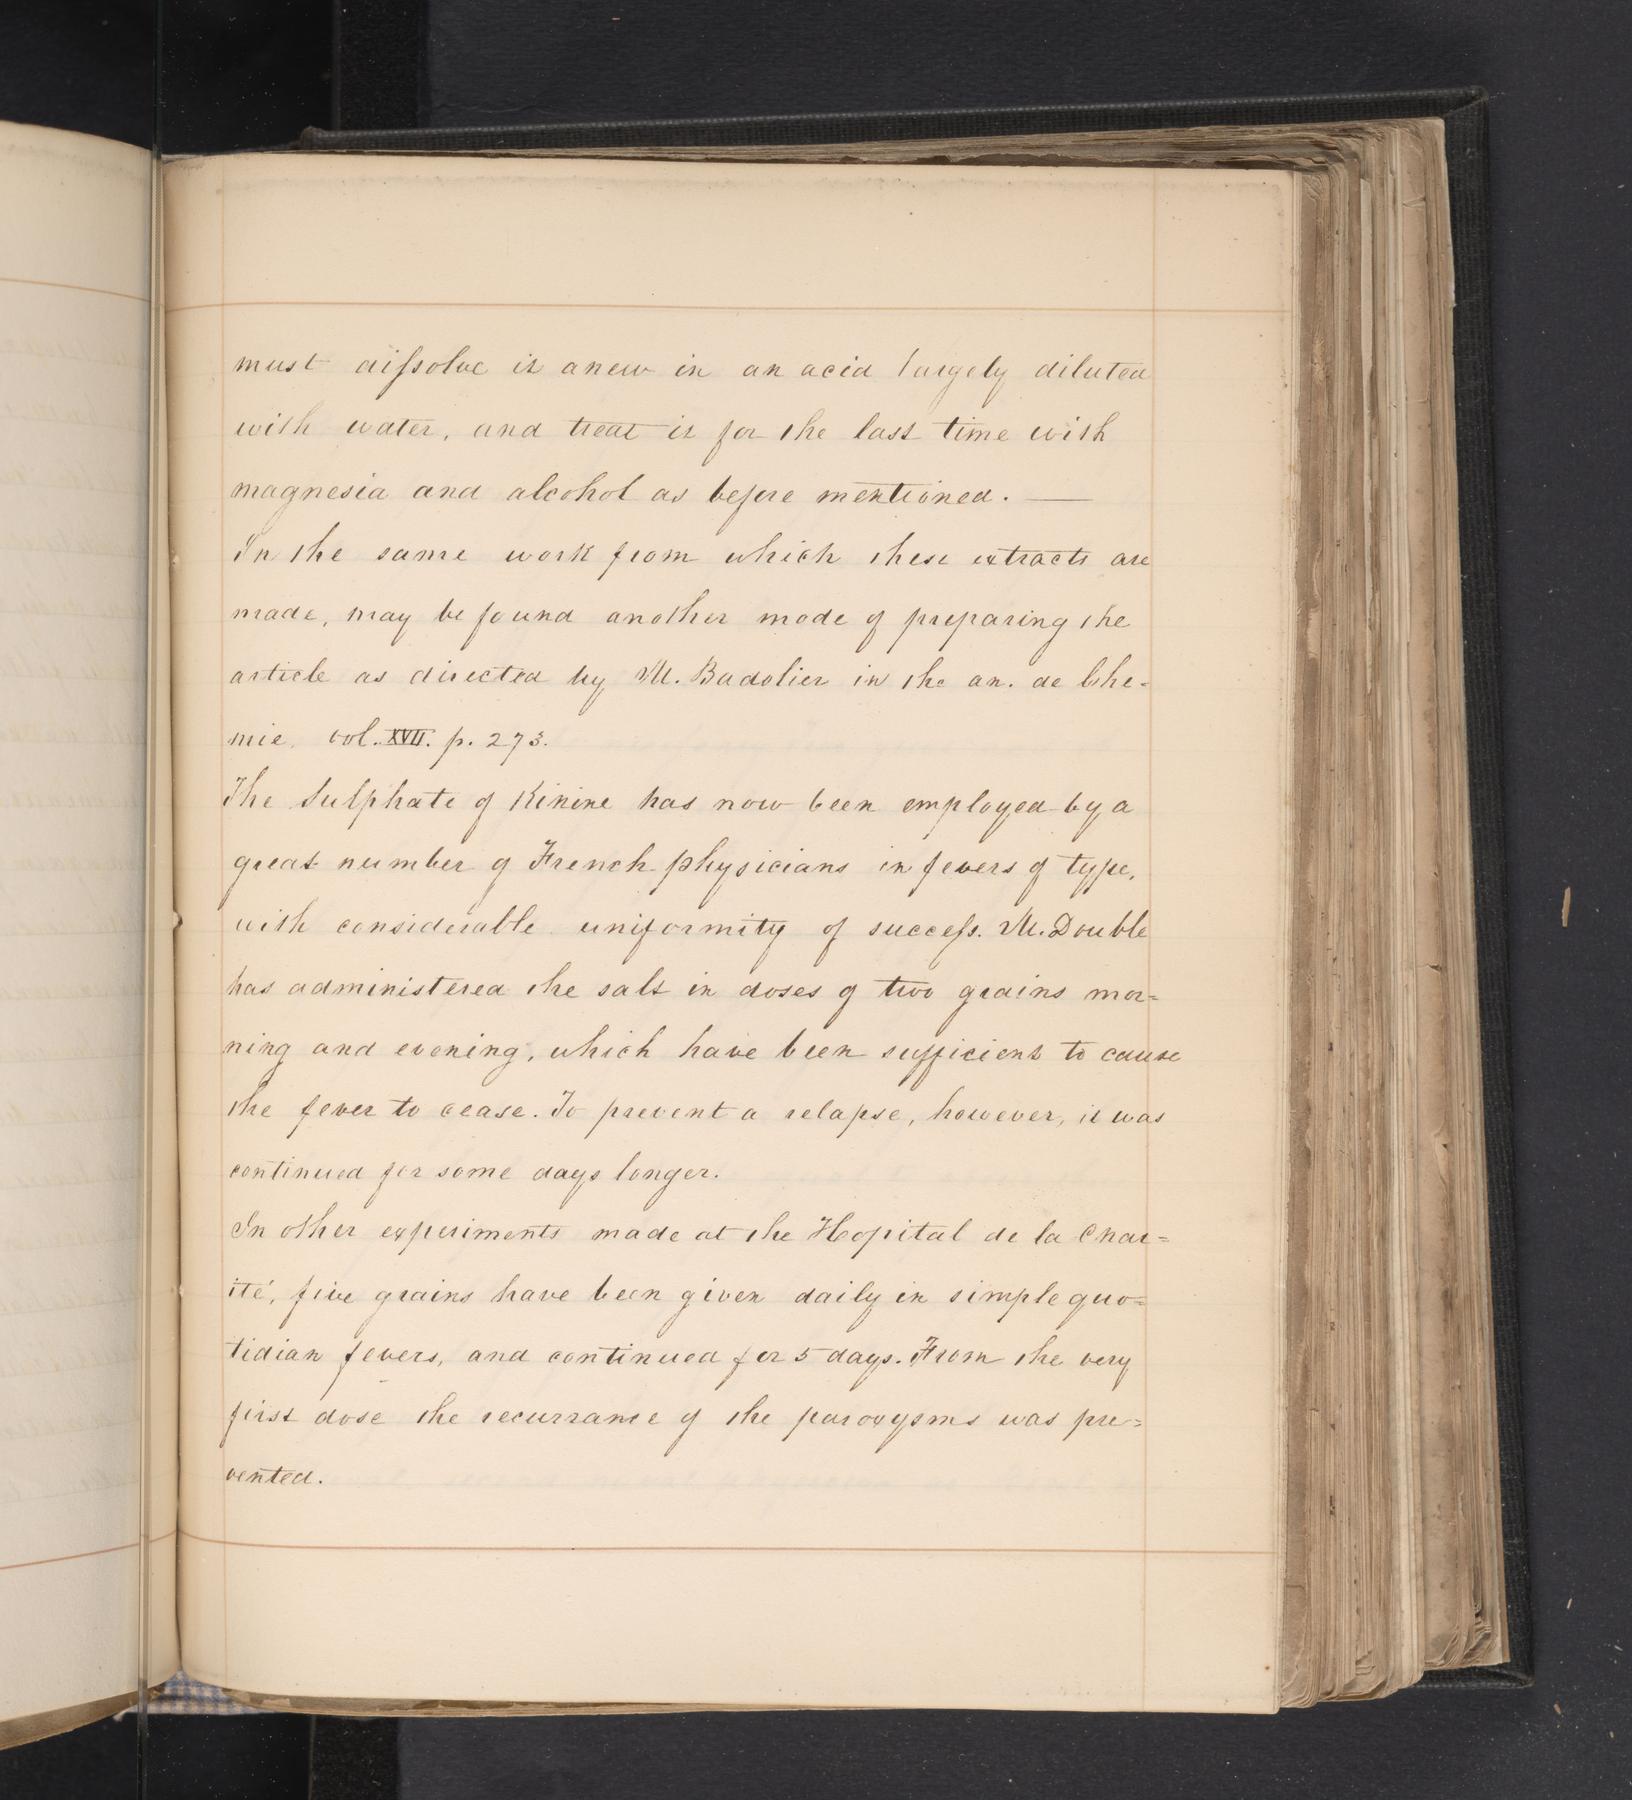 must dissolve it anew in an acid largely diluted
with water, and treat it for the last time with
magnesia and alcohol as before mentioned. —
In the same work from which these extracts are
made, may be found another mode of preparing the
article as directed by M. Badolier in the an. de Che-
mie, vol. XVII. p. 273.
The Sulphate of Kinine has now been employed by a
great number of French physicians in fevers of type,
with considerable uniformity of success. M. Double
has administered the salt in doses of two grains mor=
ning and evening, which have been sufficient to cause
the fever to cease. To prevent a relapse, however, it was
continued for some days longer.
In other experiments made at the Hopital de la Char=
ité, five grains have been given daily in simple quo=
tidian fevers, and continued for 5 days. From the very
first dose the recurrance of the paroxysms was pre=
vented.